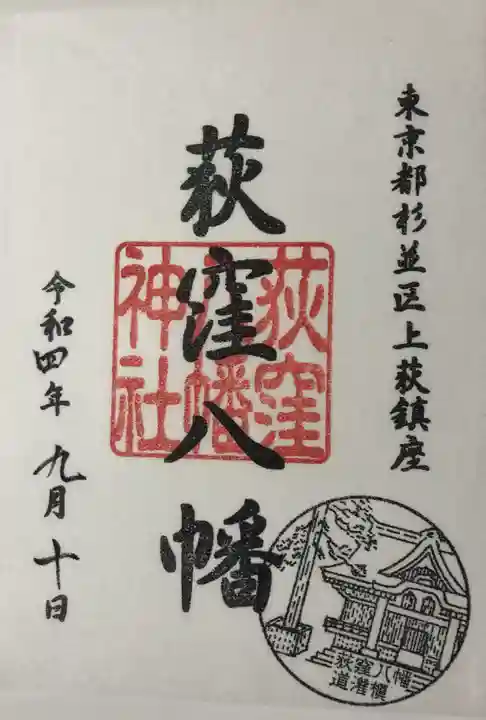 東京都杉並区上荻鎮座
荻窪八幡
荻窪
八幡
神社
令和四年 九月 十日
荻窪八幡
道灌槙